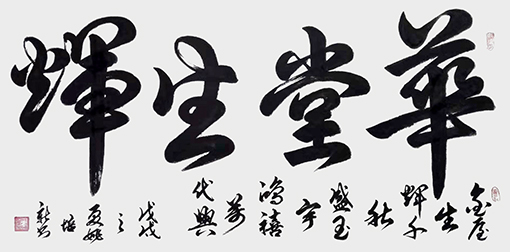 華堂生輝
金屋
生
輝千
秋
盛玉
宇
鴻禧
萬
代興
戊戌
之
夏姚
培
新